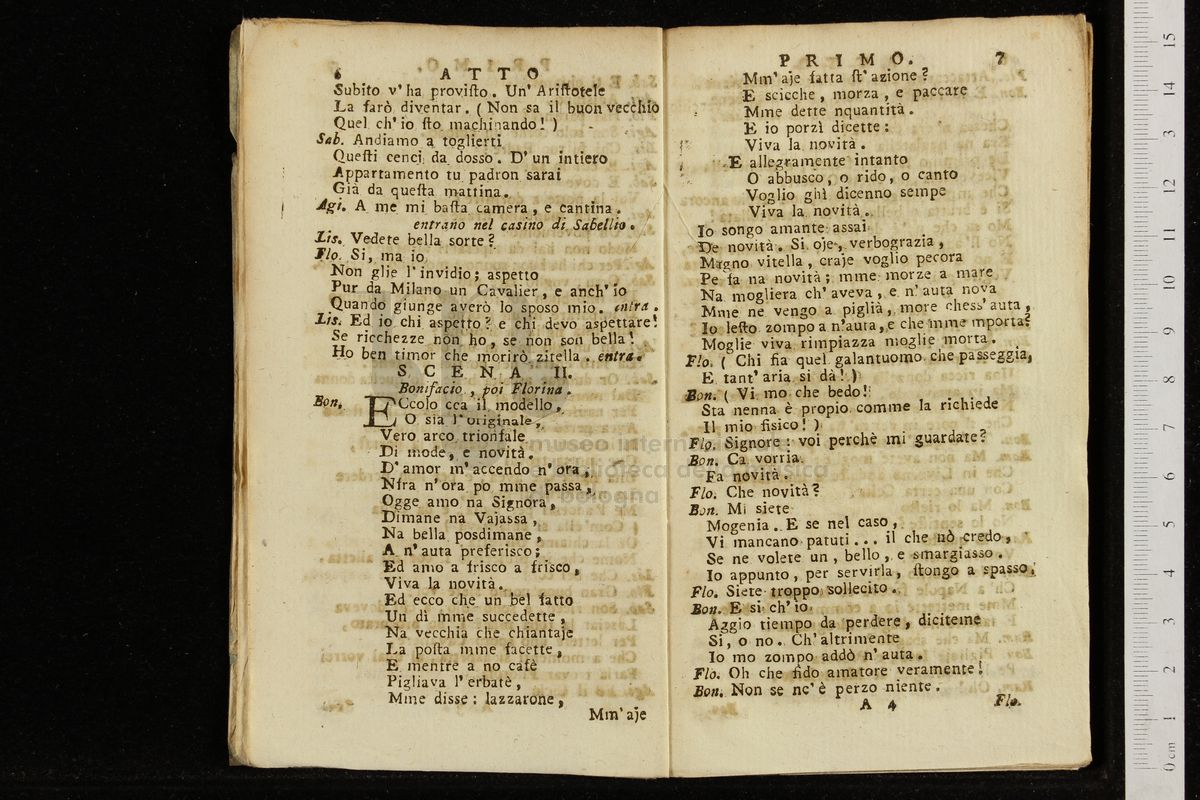 6 ATTO
Subito v' ha proviſto. Un' Ariſtotele
La farò diventar. (Non sa il buon vecchio
Quel ch' io ſto machinando! )
Sab. Andiamo a toglierti
Queſti cenci da dosso. D' un intiero
Appartamento tu padron sarai
Già da queſta mattina.
Agi. A me mi baſta camera, e cantina.
entrano nel casino di Sabellio.
Lis. Vedete bella sorte?
Flo. Si, ma io
Non glie l' invidio; aspetto
Pur da Milano un Cavalier, e anch' io
Quando giunge averò lo sposo mio. entra.
Lis. Ed io chi aspetto? e chi devo aspettare!
Se ricchezze non ho, se non son bella!
Ho ben timor che morirò zitella. entra.
SCENA II.
Bonifacio, poi Florina.
Bon. ECcolo cca il modello,
O sia l' originale,
Vero arco trionfale
Di mode, e novità.
D' amor m' accendo n' ora,
Nfra n' ora po mme passa,
Ogge amo na Signora,
Dimane na Vajassa,
Na bella posdimane,
A n' auta preferisco;
Ed amo a frisco a frisco,
Viva la novità.
Ed ecco che un bel fatto
Un dì mme succedette,
Na vecchia che chiantaje
La poſta mme facette,
E mentre a no cafè
Pigliava l' erbatè,
Mme disse: lazzarone,
Mm' aje
PRIMO. 7
Mm' aje fatta ſt' azione?
E scicche, morza, e paccare
Mme dette nquantità.
E io porzì dicette:
Viva la novità.
E allegramente intanto
O abbusco, o rido, o canto
Voglio ghì dicenno sempe
Viva la novità.
Io songo amante assai
De novità. Si oje, verbograzia,
Magno vitella, craje voglio pecora
Pe fa na novità; mme morze a mare
Na mogliera ch' aveva, e n' auta nova
Mme ne vengo a piglià, more chess' auta,
Io leſto zompo a n'auta, e che mme mporta?
Moglie viva rimpiazza moglie morta.
Flo. ( Chi fia quel galantuomo che passeggia,
E tant' aria si dà! )
Bon. ( Vi mo che bedo!
Sta nenna è propio comme la richiede
Il mio fisico! )
Flo. Signore: voi perchè mi guardate?
Bon. Ca vorria
Fa novità.
Flo. Che novità?
Bon. Mi siete
Mogenia. E se nel caso,
Vi mancano patuti... il che nò credo,
Se ne volete un, bello, e smargiasso.
Io appunto, per servirla, ſtongo a spasso.
Flo. Siete troppo sollecito.
Bon. E si ch' io
Aggio tiempo da perdere, diciteme
Si, o no. Ch' altrimente
Io mo zompo addò n' auta.
Flo. Oh che fido amatore veramente!
Bon. Non se nc' è perzo niente.
A 4 Flo.